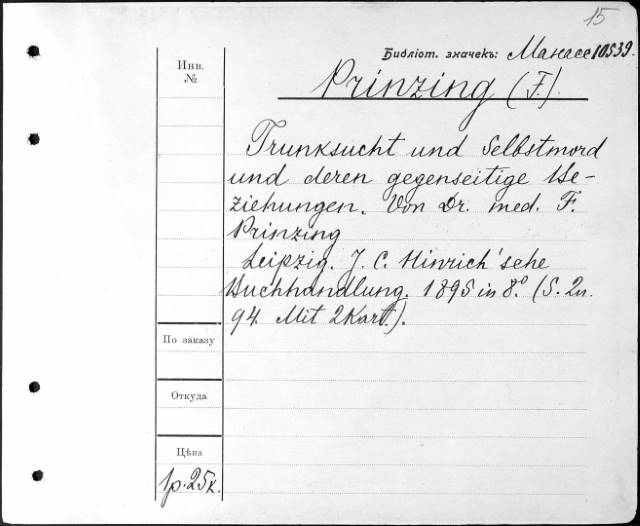 15
Библіот. значекъ: Манассе 10539.
Инв.
№
Prinzing (F.).
Trunksucht und Selbstmord
und deren gegenseitige Be-
ziehungen. Von Dr. med. F.
Prinzing
Leipzig. J. C. Hinrich'sche
Buchhandlung. 1895 in 8.° (S. 2u.
94. Mit 2 Kart.).
По заказу
Откуда
Цѣна
1р.25к.